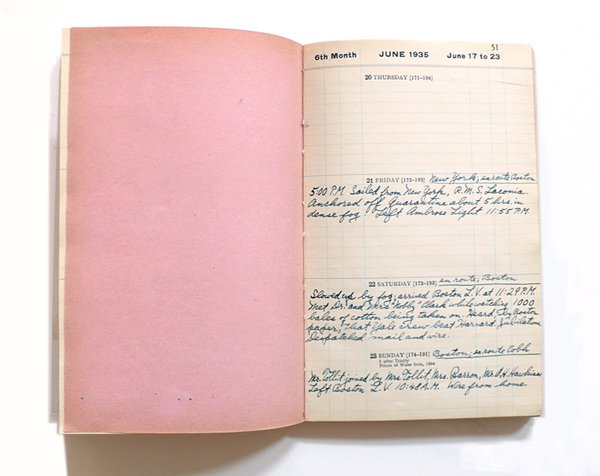 51
6th Month JUNE 1935 June 17 to 23
20 THURSDAY [171-194]
21 FRIDAY [172-193] New York; en route Boston
5:00 P.M. Sailed from New York, R.M.S. Laconia.
Anchored off Quarantine about 5 hrs. in
dense fog. Left Ambrose Light 11:55 P.M.
22 SATURDAY [173-192] en route; Boston
Slowed up by fog; arrived Boston L.V. at 11:29 P.M.
Met Dr. and Mrs "Nobby" Clark while watching 1000
bales of cotton being taken on. Heard, by Boston
paper, that Yale crew beat Harvard. Jubilation.
Despatched mail and wire.
23 SUNDAY [174-191] Boston; en route Cobh
1 after Trinity
Prince of Wales born, 1894
Mr. Tollit joined by Mrs Tollit, Mrs. Barron, Mr. A.H. Hawkins
Left Boston L.V. 10:48 A.M. Wire from home.